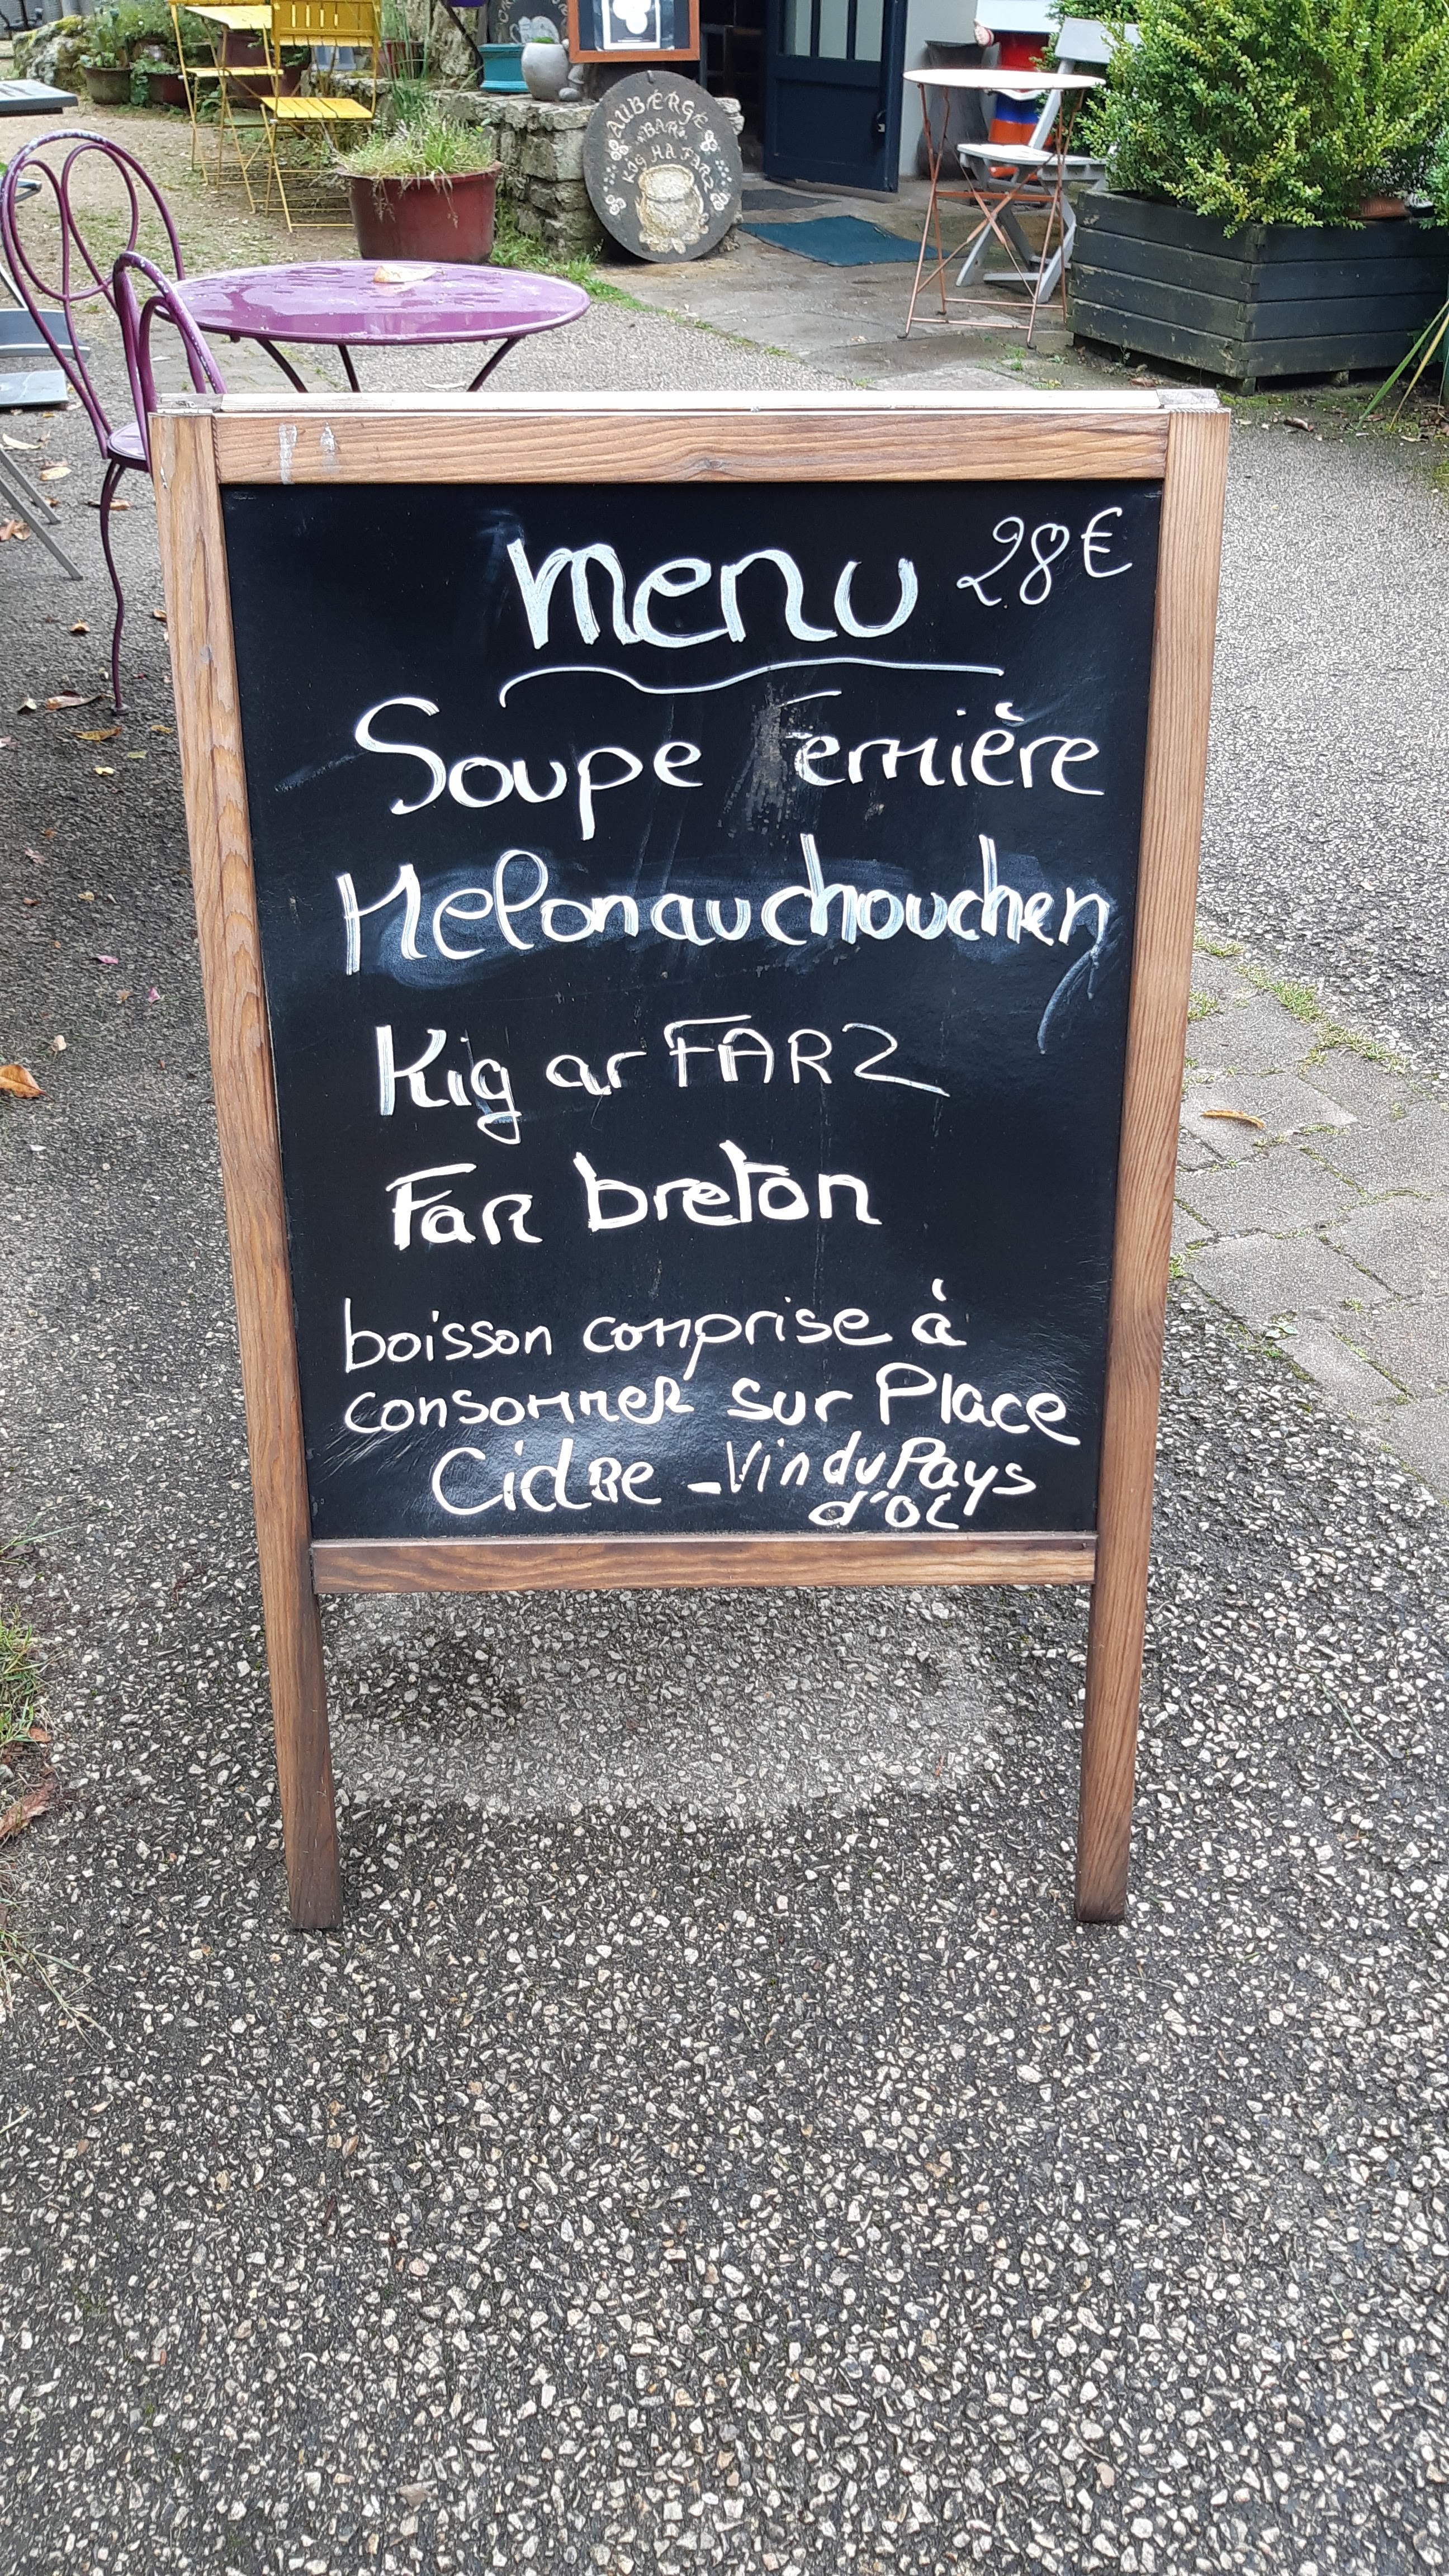 AUBERGE
BAR
KIG HA FARZ
menu 28€
Soupe Fermière
Melon au chouchen
Kig ar FARZ
Far breton
boisson comprise à
consommer sur Place
Cidre - Vin du Pays
d'oc